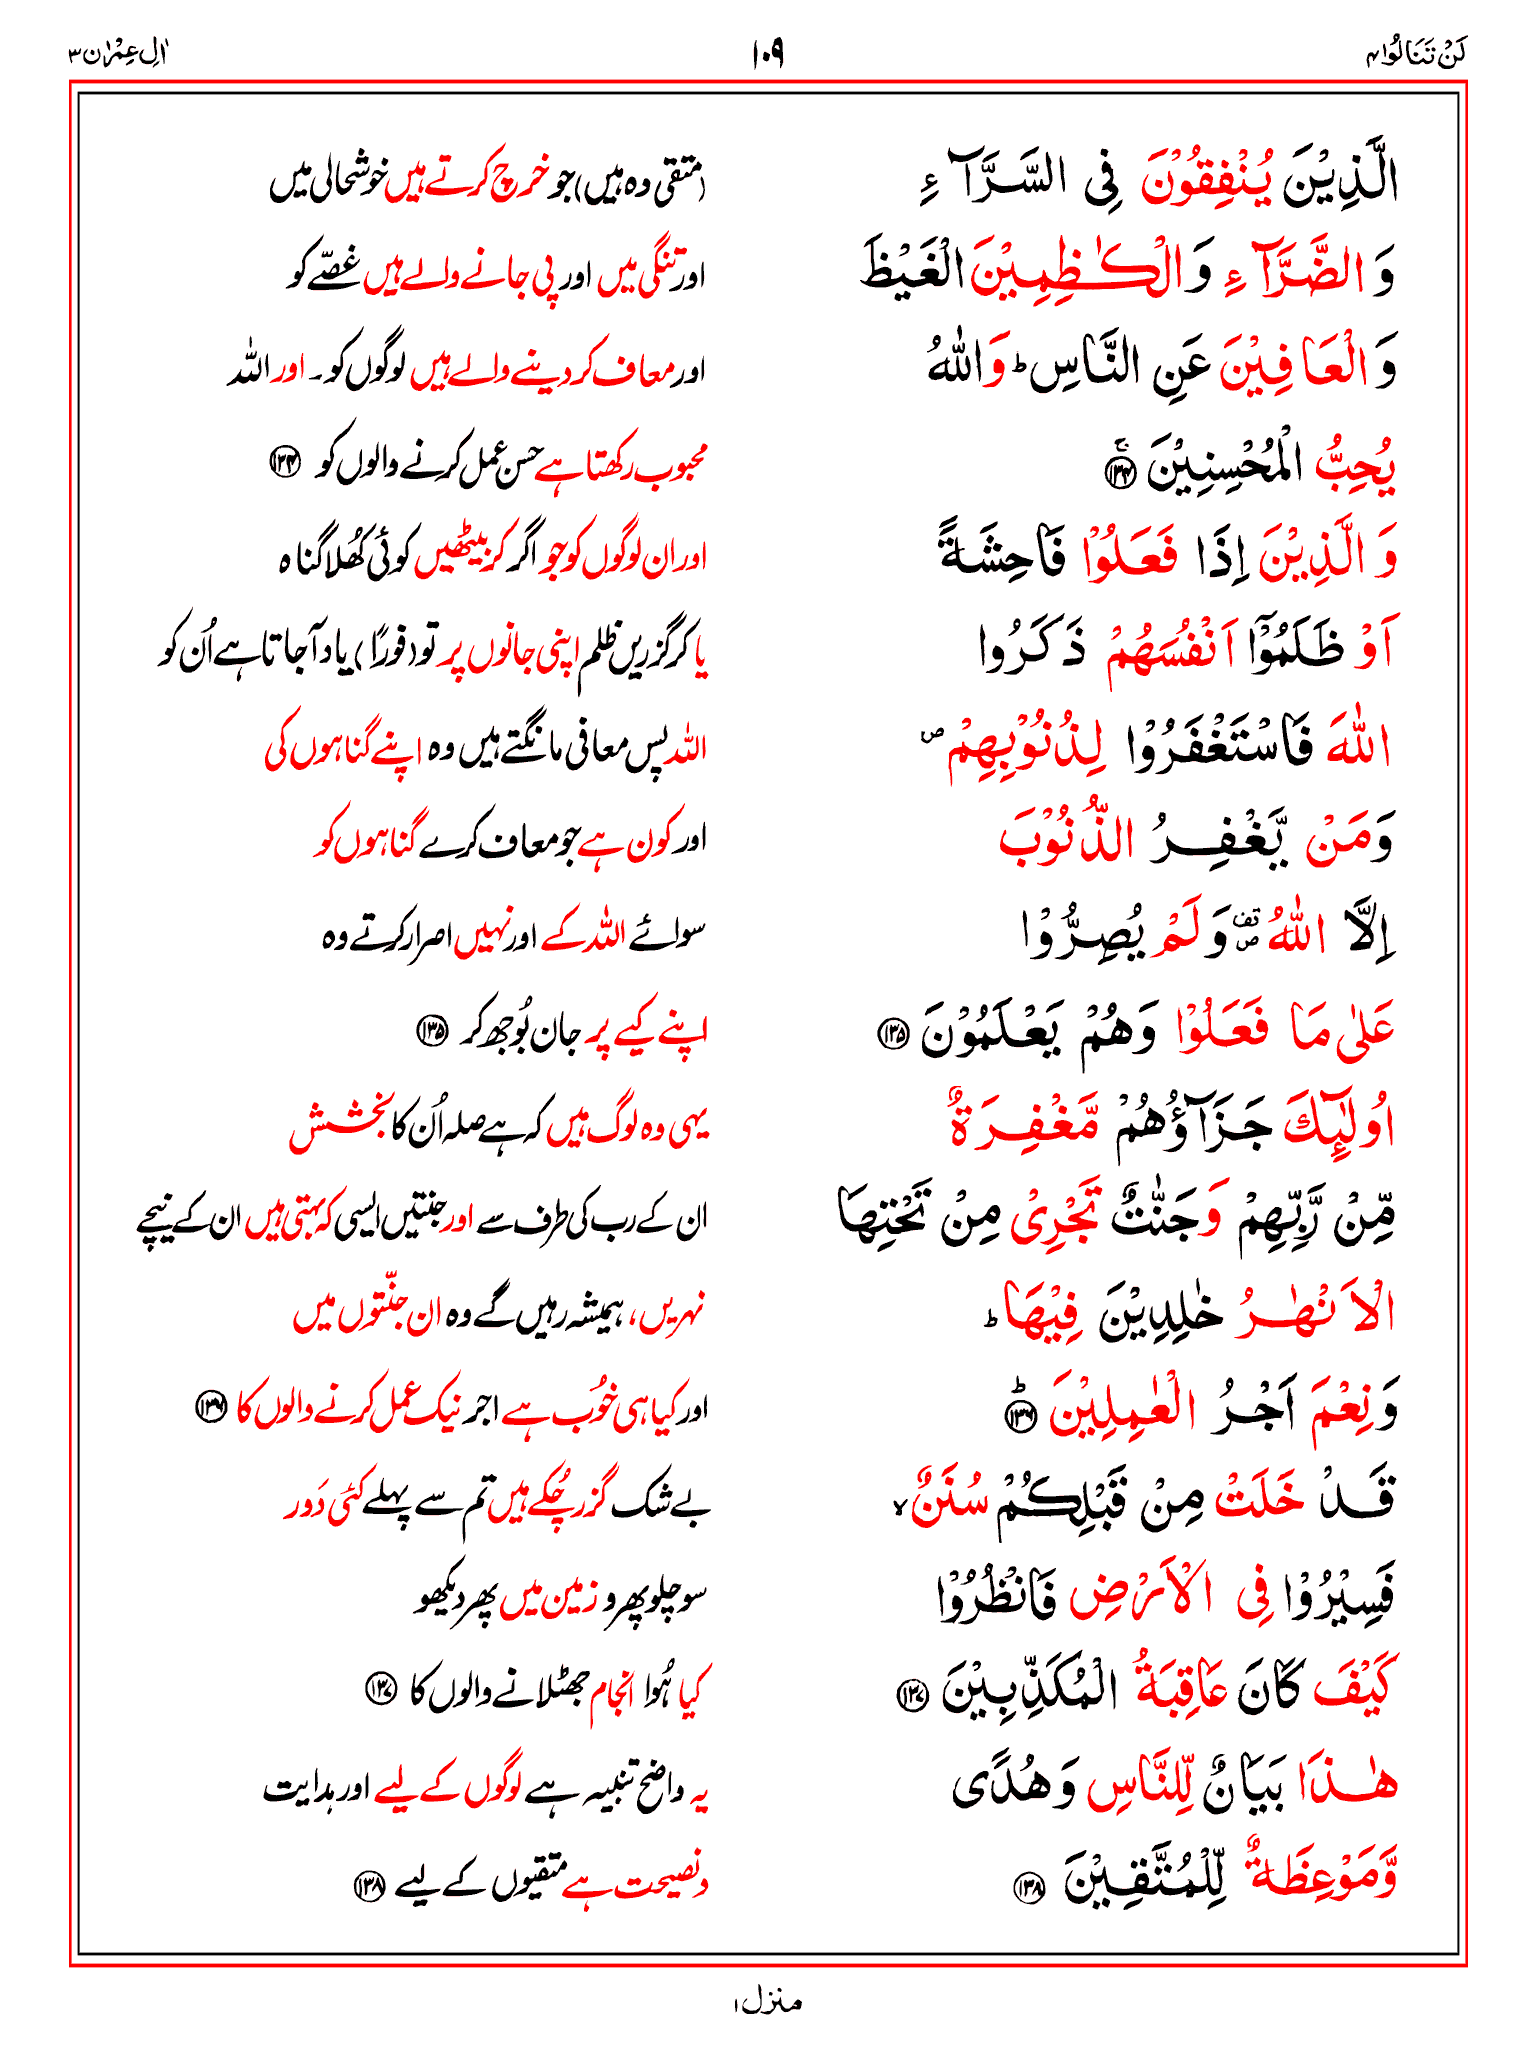 لَنْ تَنَالُوا ۴ ۱۰۹ اٰلِ عِمْرٰن ۳
الَّذِيْنَ يُنْفِقُوْنَ فِى السَّرَّآءِ (متقی وہ ہیں) جو خرچ کرتے ہیں خوشحالی میں
وَالضَّرَّآءِ وَالْكٰظِمِيْنَ الْغَيْظَ اور تنگی میں اور پی جانے والے ہیں غصّے کو
وَالْعَافِيْنَ عَنِ النَّاسِ ؕ وَاللّٰهُ اور معاف کر دینے والے ہیں لوگوں کو۔ اور اللہ
يُحِبُّ الْمُحْسِنِيْنَ ۚ ﴿۱۳۴﴾ محبوب رکھتا ہے حسن عمل کرنے والوں کو ﴿۱۳۴﴾
وَالَّذِيْنَ اِذَا فَعَلُوْا فَاحِشَةً اور ان لوگوں کو جو اگر کر بیٹھیں کوئی کُھلا گناہ
اَوْ ظَلَمُوْۤا اَنْفُسَهُمْ ذَكَرُوا یا کر گزریں ظلم اپنی جانوں پر تو (فورًا) یاد آجاتا ہے اُن کو
اللّٰهَ فَاسْتَغْفَرُوْا لِذُنُوْبِهِمْ ۪ اللہ پس معافی مانگتے ہیں وہ اپنے گناہوں کی
وَمَنْ يَّغْفِرُ الذُّنُوْبَ اور کون ہے جو معاف کرے گناہوں کو
اِلَّا اللّٰهُ ۪۟ وَلَمْ يُصِرُّوْا سوائے اللہ کے اور نہیں اصرار کرتے وہ
عَلٰى مَا فَعَلُوْا وَهُمْ يَعْلَمُوْنَ ﴿۱۳۵﴾ اپنے کیے پر جان بُوجھ کر ﴿۱۳۵﴾
اُولٰٓئِكَ جَزَآؤُهُمْ مَّغْفِرَةٌ یہی وہ لوگ ہیں کہ ہے صلہ اُن کا بخشش
مِّنْ رَّبِّهِمْ وَجَنّٰتٌ تَجْرِىْ مِنْ تَحْتِهَا ان کے رب کی طرف سے اور جنتیں ایسی کہ بہتی ہیں ان کے نیچے
الْاَنْهٰرُ خٰلِدِيْنَ فِيْهَا ؕ نہریں، ہمیشہ رہیں گے وہ ان جنّتوں میں
وَنِعْمَ اَجْرُ الْعٰمِلِيْنَ ؕ ﴿۱۳۶﴾ اور کیا ہی خُوب ہے اجر نیک عمل کرنے والوں کا ﴿۱۳۶﴾
قَدْ خَلَتْ مِنْ قَبْلِكُمْ سُنَنٌ ۙ بے شک گزر چُکے ہیں تم سے پہلے کئی دَور
فَسِيْرُوْا فِى الْاَرْضِ فَانْظُرُوْا سو چلو پھرو زمین میں پھر دیکھو
كَيْفَ كَانَ عَاقِبَةُ الْمُكَذِّبِيْنَ ﴿۱۳۷﴾ کیا ہُوا انجام جھٹلانے والوں کا ﴿۱۳۷﴾
هٰذَا بَيَانٌ لِّلنَّاسِ وَهُدًى یہ واضح تنبیہ ہے لوگوں کے لیے اور ہدایت
وَّمَوْعِظَةٌ لِّلْمُتَّقِيْنَ ﴿۱۳۸﴾ و نصیحت ہے متقیوں کے لیے ﴿۱۳۸﴾
منزل ۱